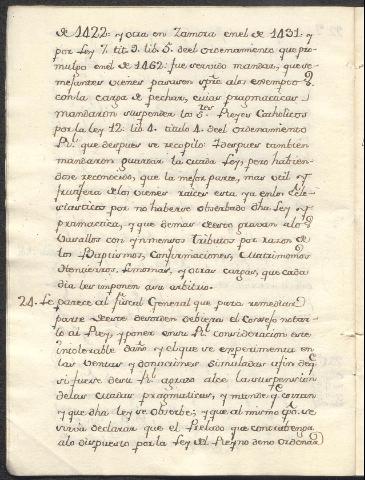 de 1422: y otra en Zamora en el de 1431: y
por Ley 7. tit. 9. lib. 5. deel ordenamiento que pro-
mulgo en el de 1462: fue servido mandar, que se-
mejantes vienes pasaren spre. alos exemptos
con la carga de pechar, cuias pragmaticas
mandaron suspender los Sres. Reyes Catholicos
por la ley 12. lib. 4. titulo 4. deel ordenamiento
Rl. que despues se recopilo: Y despues tambien
mandaron guardar la citada Ley, pero havien-
dose reconocido, que la mejor parte, mas util y
fructifera de los vienes raices esta ya en los Ecle-
siasticos por no haberse observado dha Ley y
pramactica, y que demas de esto gravan a los
Vasallos con ynmensos tributos por razon de
los Baptismos, Confirmaciones, Matrimonios
Entierros, limosnas, y otras cargas, que cada
dia les imponen a su arbitrio.
24. Le parece al fiscal General que para remediar
parte de este desorden debiera el Consejo notar-
lo al Rey, y poner en su Rl. consideracion este
intolerable daño y el que se experimenta en
las ventas y donaciones simuladas a fin de q
si fuese de su Rl. agrado alce la suspension
de las citadas pragmaticas, y mande q corran
y que dha ley se observe; y que al mismo tpo. se
sirva declarar que el Prelado que contrabenga
a lo dispuesto por la Ley del Reyno de no ordenar